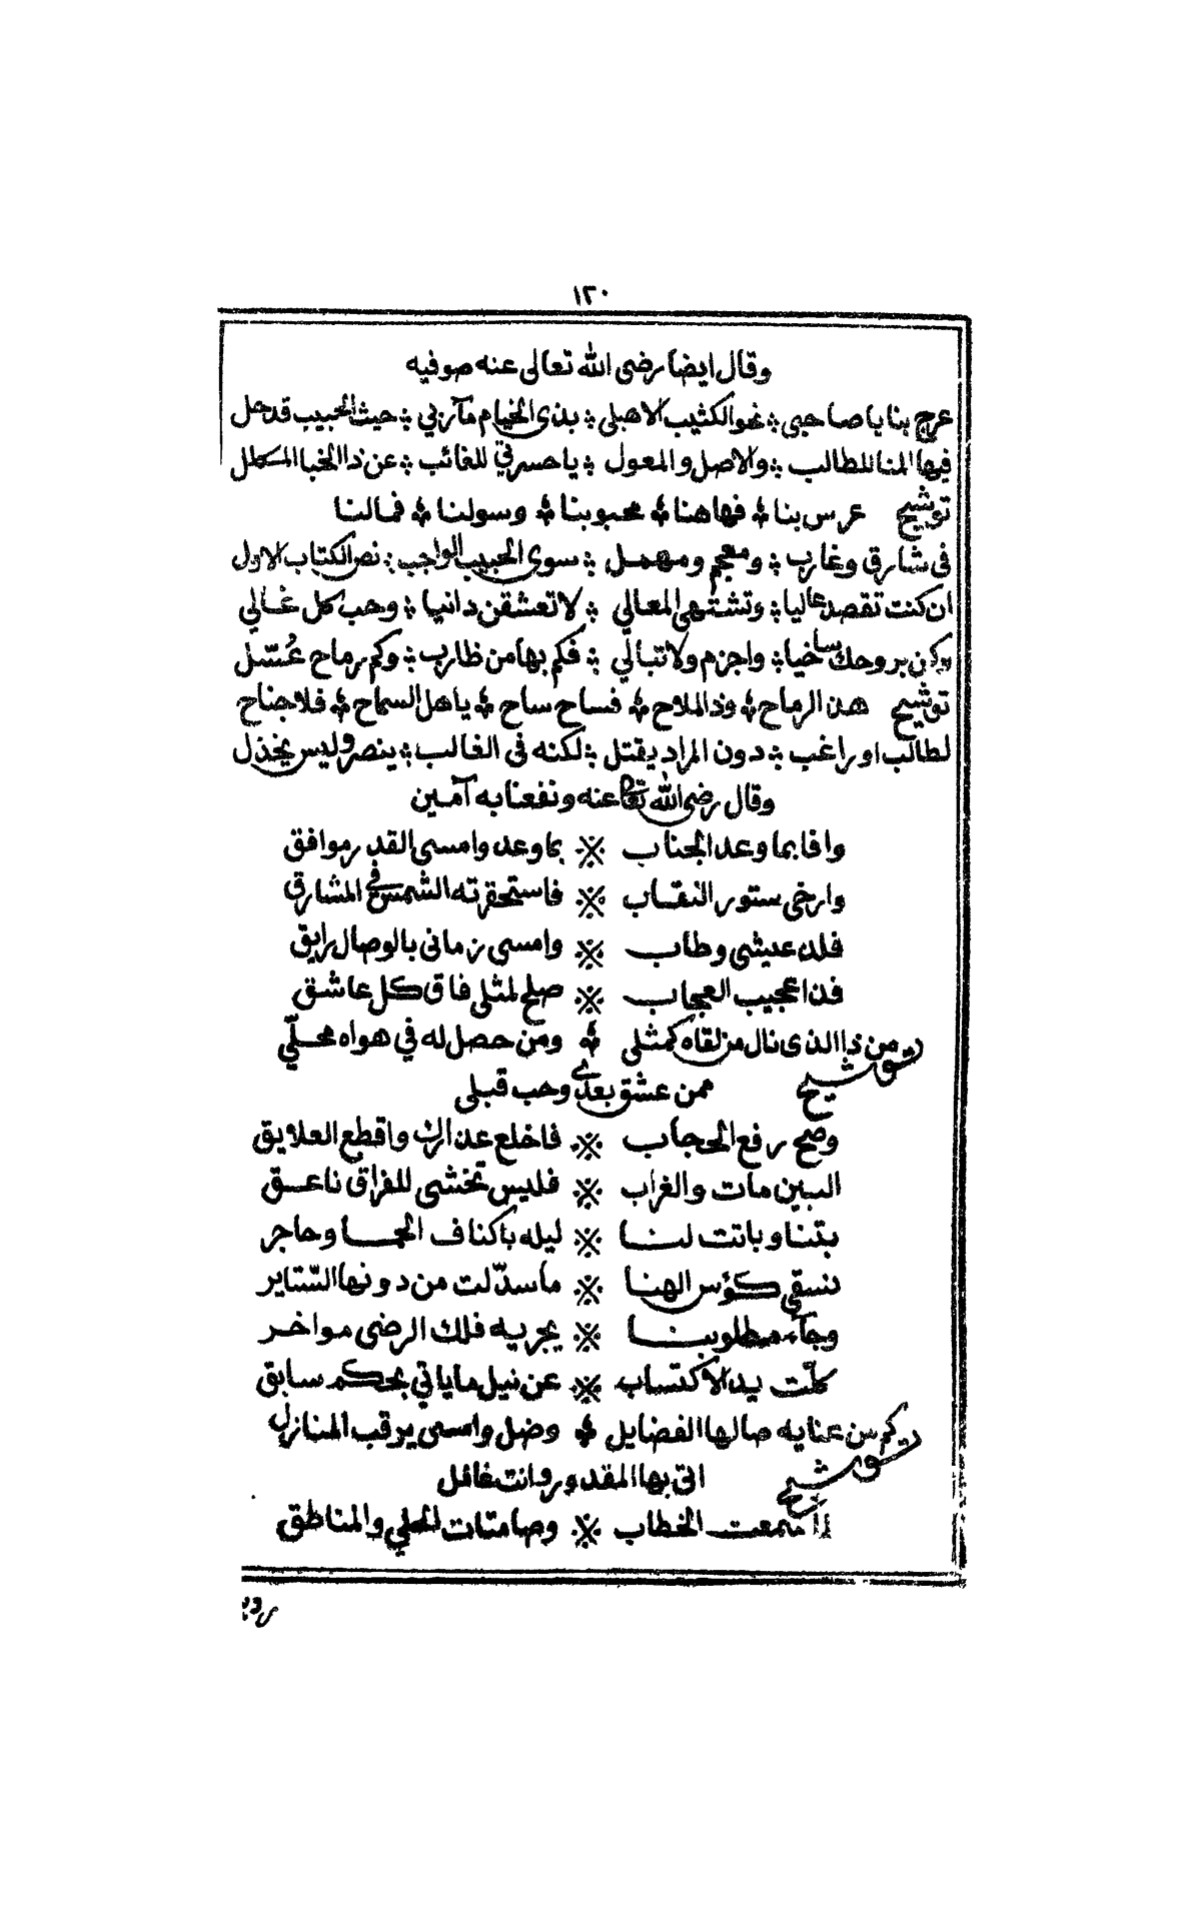 ١٢٠
وقال ايضا رضى الله تعالى عنه صوفيه
عرج بنا يا صاحبى ؞ نحو الكثيب الاهيلى ؞ بذى الخيام مآربي ؞ حيث الحبيب قد حل
فيها المنا للطالب ؞ والاصل والمعول ؞ يا حسرتي للغائب ؞ عن ذا الخبا المسطل
توشيح عرس بنا ؞ فها هنا ؞ محبوبنا ؞ وسولنا ؞ فمالنا
فى شارق وغارب ؞ ومعجم ومهمل ؞ سوى الحبيب الواجب ؞ نص الكتاب الاول
ان كنت تقصد عاليا ؞ وتشتهى المعالي ؞ لا تعشقن دانيا ؞ وحب كل غالي
وكن بروحك ساخيا ؞ واجزم ولا تبالي ؞ فكم بها من ظارب ؞ وكم رماح عُسّل
توشيح هذه الرماح ؞ وذ الملاح ؞ فساح ساح ؞ يا هل السماح ؞ فلا جناح
لطالب او راغب ؞ دون المراد يقتل ؞ لكنه فى الغالب ؞ ينصر وليس يخذل
وقال رضى الله تعا عنه ونفعنا به آمين
وافا بما وعد الجناب ※ بما وعد وامسى القدر موافق
وارخى ستور النقاب ※ فاستحقرته الشمس في المشارق
فلذ عيشى وطاب ※ وامسى زمانى بالوصال رايق
فذا عجيب العجاب ※ صلح لمثلى فاق كل عاشق
توشيح من ذا الذى نال من لقاه كمثلى ؞ ومن حصل له في هواه محلّي
ممن عشق بعدى وحب قبلى
وصح رفع الحجاب ※ فاخلع عذارك واقطع العلايق
البين مات والغراب ※ فليس تخشى للفراق ناعق
بتنا وباتت لنا ※ ليله باكناف الحما وحاجر
نسقى كؤس الهنا ※ ما سدّلت من دونها السّتاير
وجآء مطلوبنا ※ يجريه فلك الرضى مواخر
كلّت يد الاكتساب ※ عن نيل ما ياتي بحكم سابق
توشيح كم من عنايه صالها الفضايل ؞ وضل وامسى يرقب المنازل
اتى بها المقدور وانت غافل
لما سمعت الخطاب ※ وصامتات الحلي والمناطق